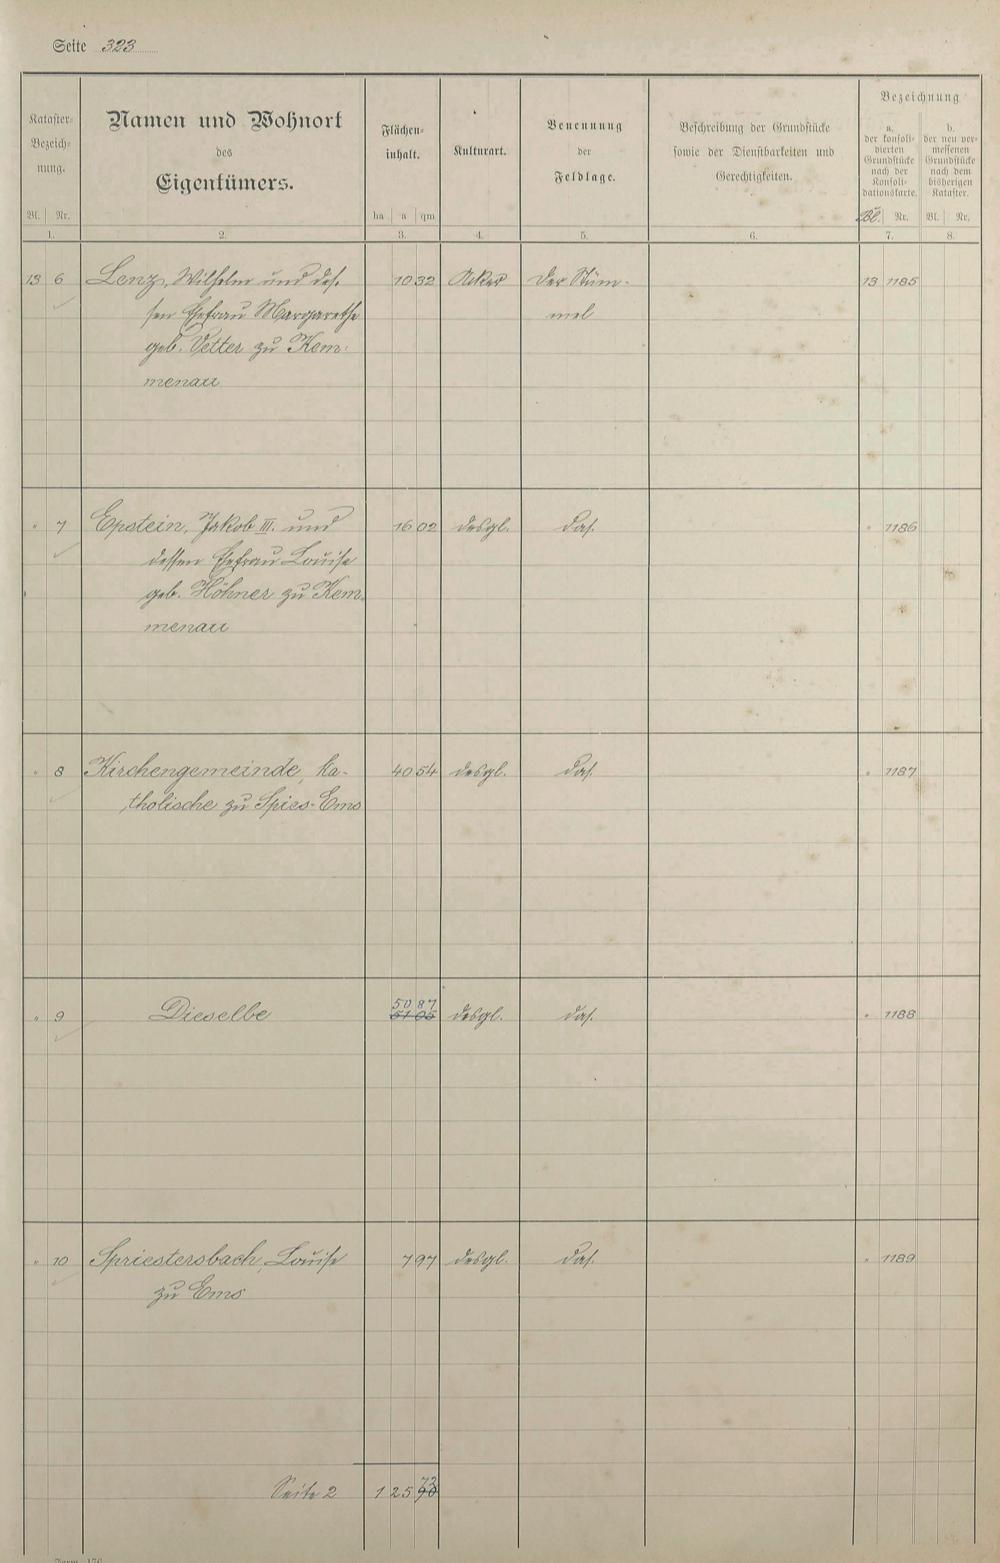 Seite 323
Kataster-
Bezeich-
nung.
Bl. Nr.
1.
Namen und Wohnort
des
Eigentümers.
2.
Flächen-
inhalt.
ha a qm
3.
Kulturart.
4.
Benennung
der
Feldlage.
5.
Beschreibung der Grundstücke
sowie der Dienstbarkeiten und
Gerechtigkeiten.
6.
Bezeichnung
a.
der konsoli-
dierten
Grundstücke
nach der
Konsoli-
dationskarte.
Bl. Nr.
7.
b.
der neu ver-
messenen
Grundstücke
nach dem
bisherigen
Kataster.
Bl. Nr.
8.
13 6 Lenz, Wilhelm und des- 10 32 Acker Der Stüm- 13 1185
sen Ehefrau Margarethe mel
geb. Vetter zu Kem-
menau
" 7 Epstein, Jakob III. und 16 02 desgl. das. " 1186
dessen Ehefrau Louise
geb. Höhner zu Kem-
menau
" 8 Kirchengemeinde, ka- 40 54 desgl. das. " 1187
tholische zu Spies-Ems
50 87
" 9 Dieselbe 51 05 desgl. das. " 1188
" 10 Spriestersbach, Louise 7 97 desgl. das. " 1189
zu Ems
73
Seite 2 1 25 90